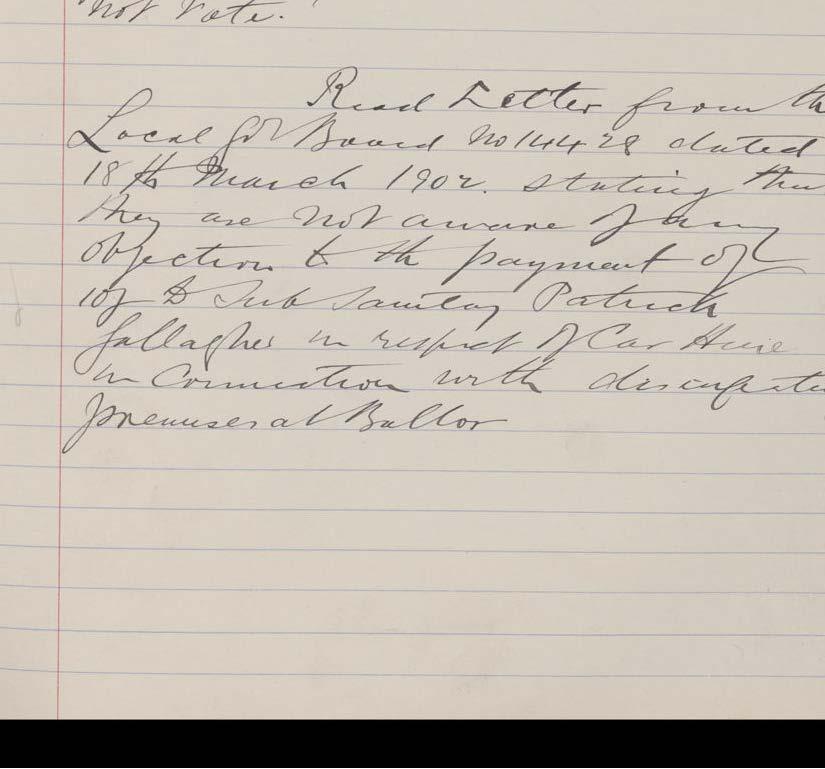 not vote.
Read Letter from th
Local Gov Board No 14428 dated
18th March 1902. stating tha
they are not aware of any
objection to the payment of
10/ to Sub Sanitary Patrick
Gallagher in respect of Car Hire
in Connection with
premises at Ballor